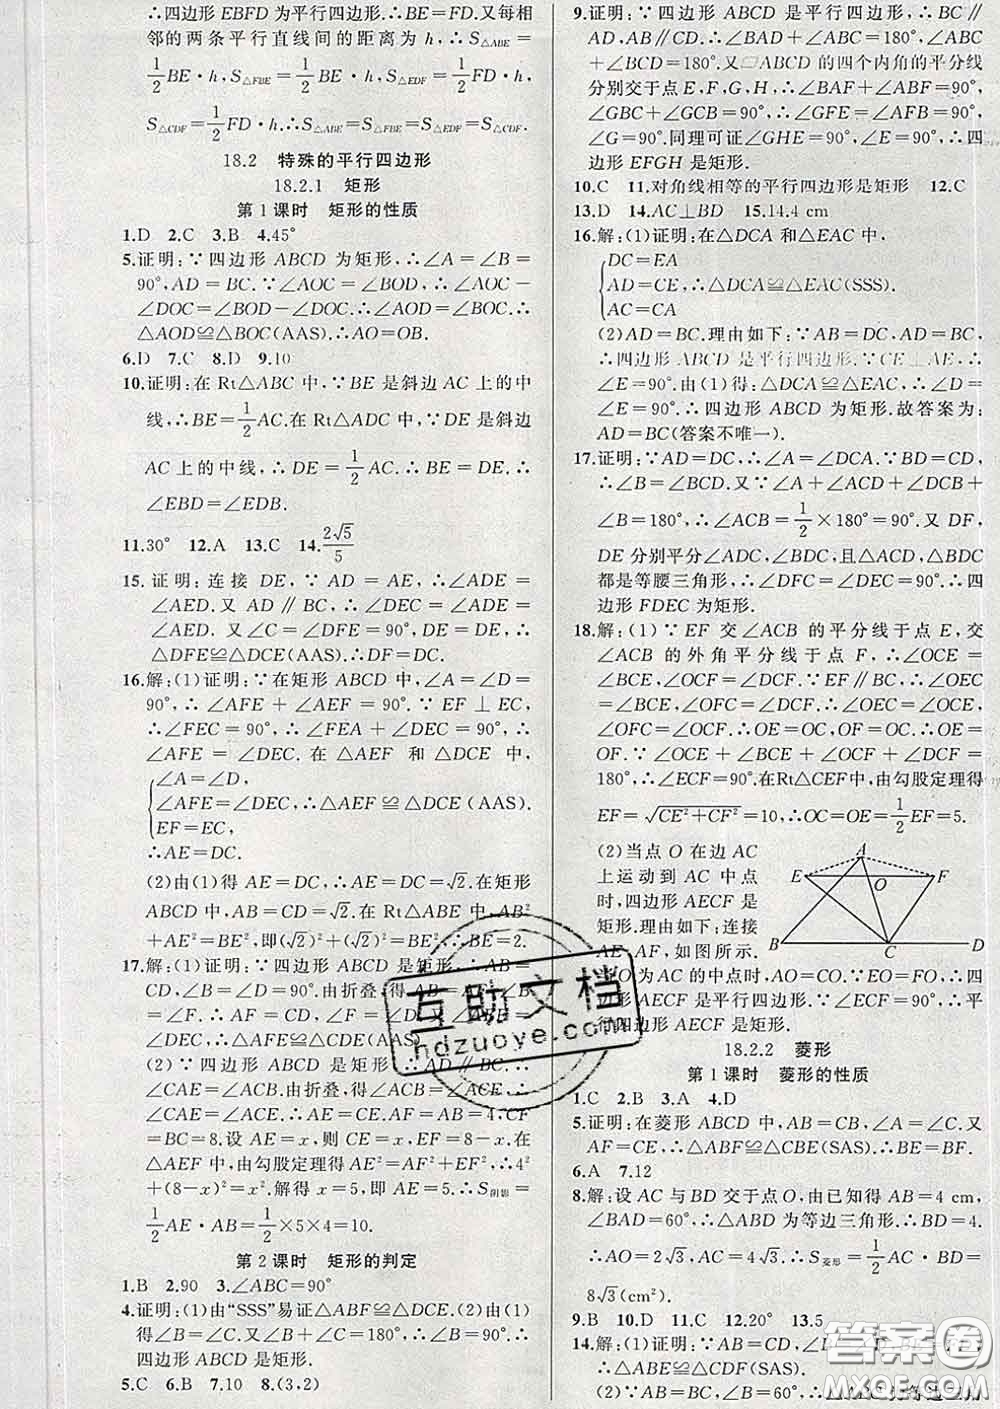 ∴四边形EBFD为平行四边形.∴BE=FD.又每相
邻的两条平行直线间的距离为h,∴S△ABE=
1/2BE·h,S△FBE=1/2BE·h,S△EDF=1/2FD·h,
S△CDF=1/2FD·h.∴S△ABE=S△FBE=S△EDF=S△CDF.
18.2 特殊的平行四边形
18.2.1 矩形
第1课时 矩形的性质
1.D 2.C 3.B 4.45°
5.证明:∵四边形ABCD为矩形,∴∠A=∠B=
90°,AD=BC.∵∠AOC=∠BOD,∴∠AOC-
∠DOC=∠BOD-∠DOC.∴∠AOD=∠BOC.∴
△AOD≌△BOC(AAS).∴AO=OB.
6.D 7.C 8.D 9.10
10.证明:在Rt△ABC中,∵BE是斜边AC上的中
线,∴BE=1/2AC.在Rt△ADC中,∵DE是斜边
AC上的中线,∴DE=1/2AC.∴BE=DE.∴
∠EBD=∠EDB.
11.30° 12.A 13.C 14.2√5/5
15.证明:连接DE,∵AD=AE,∴∠ADE=
∠AED.又AD∥BC,∴∠DEC=∠ADE=
∠AED.又∠C=∠DFE=90°,DE=DE,∴
△DFE≌△DCE(AAS).∴DF=DC.
16.解:(1)证明:∵在矩形ABCD中,∠A=∠D=
90°,∴∠AFE+∠AEF=90°.∵EF⊥EC,
∴∠FEC=90°,∴∠FEA+∠DEC=90°,∴
∠AFE=∠DEC.在△AEF和△DCE中,
∠A=∠D,
∠AFE=∠DEC,∴△AEF≌△DCE(AAS).
EF=EC,
∴AE=DC.
(2)由(1)得AE=DC,∴AE=DC=√2.在矩形
ABCD中,AB=CD=√2.在Rt△ABE中,AB²
+AE²=BE²,即(√2)²+(√2)²=BE²,∴BE=2.
17.解:(1)证明:∵四边形ABCD是矩形,∴AB=
CD,∠B=∠D=90°.由折叠,得
∠F.∴AF=CD,∠F=∠D.又
∠DEC,∴△AFE≌△CDE(AAS)
(2)∵四边形ABCD是矩形,∴AD∥BC.∴
∠CAE=∠ACB.由折叠,得∠ACE=∠ACB,∴
∠CAE=∠ACE.∴AE=CE.∵AF=AB=4,CF
=BC=8.设AE=x,则CE=x,EF=8-x.在
△AEF中,由勾股定理得AE²=AF²+EF²,∴4²
+(8-x)²=x².解得x=5,即AE=5.∴S阴影=
1/2AE·AB=1/2×5×4=10.
第2课时 矩形的判定
1.B 2.90 3.∠ABC=90°
4.证明:(1)由“SSS”易证△ABF≌△DCE.(2)由(1)
得∠B=∠C.又∵∠B+∠C=180°,∴∠B=90°.∴
四边形ABCD是矩形.
5.C 6.B 7.10 8.(3,2)
9.证明:∵四边形ABCD是平行四边形,∴BC∥
AD,AB∥CD.∴∠BAD+∠ABC=180°,∠ABC
+∠BCD=180°.又▱ABCD的四个内角的平分线
分别交于点E,F,G,H,∴∠BAF+∠ABF=90°,
∠GBC+∠GCB=90°.∴∠GFE=∠AFB=90°,
∠G=90°.同理可证∠GHE=90°,∠E=90°.∴四
边形EFGH是矩形.
10.C 11.对角线相等的平行四边形是矩形 12.C
13.D 14.AC⊥BD 15.14.4 cm
16.解:(1)证明:在△DCA和△EAC中,
DC=EA
AD=CE,∴△DCA≌△EAC(SSS).
AC=CA
(2)AD=BC.理由如下:∵AB=DC,AD=BC,
∴四边形ABCD是平行四边形.∵CE⊥AE,∴
∠E=90°.由(1)得:△DCA≌△EAC,∴∠D=
∠E=90°.∴四边形ABCD为矩形.故答案为:
AD=BC(答案不唯一).
17.证明:∵AD=DC,∴∠A=∠DCA.∵BD=CD,
∴∠B=∠BCD.又∵∠A+∠ACD+∠DCB+
∠B=180°,∴∠ACB=1/2×180°=90°.又DF,
DE分别平分∠ADC,∠BDC,且△ACD,△BDC
都是等腰三角形,∴∠DFC=∠DEC=90°.∴四
边形FDEC为矩形.
18.解:(1)∵EF交∠ACB的平分线于点E,交
∠ACB的外角平分线于点F,∴∠OCE=
∠BCE,∠OCF=∠DCF.∵EF∥BC,∴∠OEC
=∠BCE,∠OFC=∠DCF.∴∠OEC=∠OCE,
∠OFC=∠OCF.∴OE=OC,OF=OC.∴OE=
OF.∵∠OCE+∠BCE+∠OCF+∠DCF=
180°,∴∠ECF=90°.在Rt△CEF中,由勾股定理得
EF=√(CE²+CF²)=10,∴OC=OE=1/2EF=5.
(2)当点O在边AC
上运动到AC中点
时,四边形AECF是
矩形.理由如下:连接
AE,AF,如图所示.
O为AC的中点时,AO=CO.∵EO=FO,∴四
边形AECF是平行四边形.∵∠ECF=90°,∴平
行四边形AECF是矩形.
A
E
O
F
B
C
D
18.2.2 菱形
第1课时 菱形的性质
1.C 2.B 3.A 4.D
5.证明:在菱形ABCD中,∵AB=CB,∠A=∠C.又
AF=CE,∴△ABF≌△CBE(SAS).∴BE=BF.
6.A 7.12
8.解:设AC与BD交于点O,由已知得AB=4 cm,
∠BAD=60°,∴△ABD为等边三角形.∴BD=4.
∴AO=2√3,AC=4√3.∴S菱形=1/2AC·BD=
8√3(cm²).
9.B 10.D 11.C 12.20° 13.5
14.解:(1)证明:∵AB=CD,
∴△ABE≌△CDF(SAS).
(2)∵AB=BC,∠B=60°,
互助文档
hdzuoye.com
答案圈
MXQE.COM